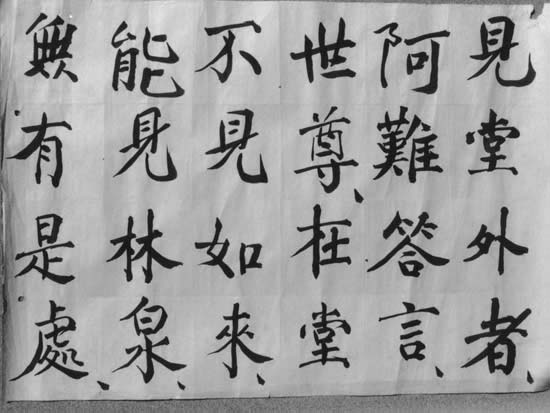 見堂外者、
阿難答言、
世尊、在堂、
不見如來、
能見林泉、
無有是處、